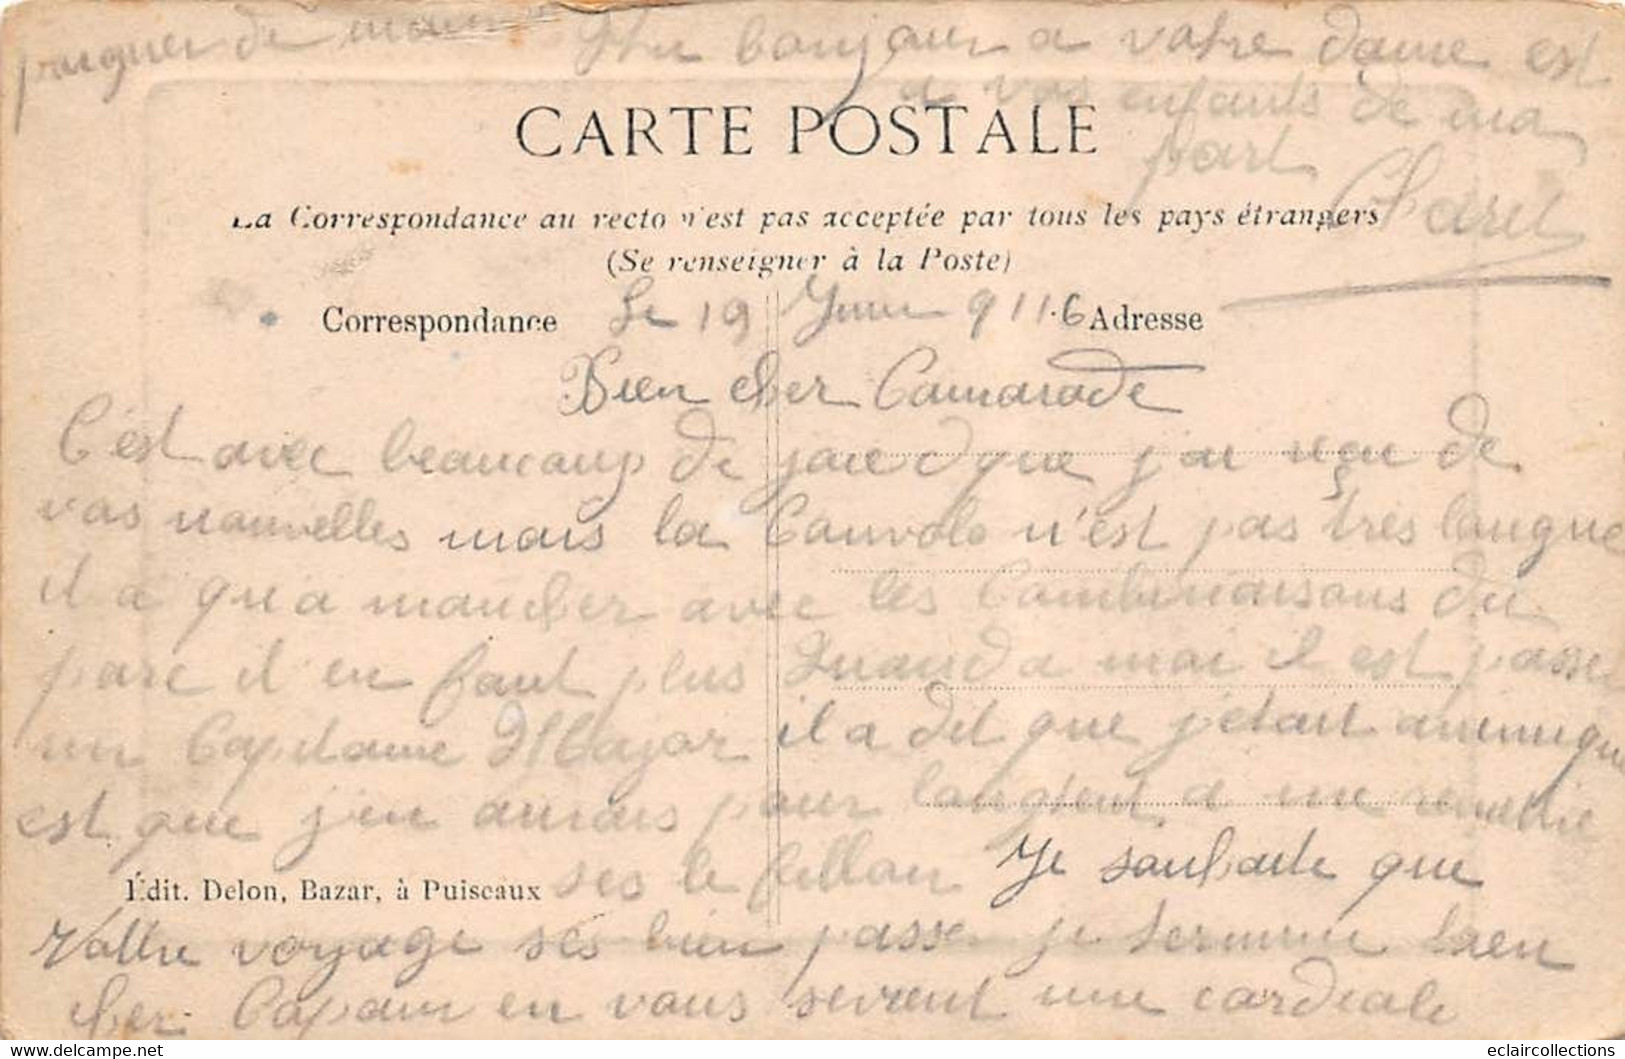 poigner de main Un bonjour a votre dame est
a vos enfants de ma
part
CARTE POSTALE
La Correspondance au recto n'est pas acceptée par tous les pays étrangers
(Se renseigner à la Poste)
Correspondance Le 19 Juin 9116 Adresse
Bien cher Camarade
C'est avec beaucoup de joie que j'ai reçu de
vos nouvelles mais la Convolo n'est pas très longue
il a qu'a marcher avec les Combinaisons du
parc il en faut plus Quand a moi il est passé
un Capitaine Major il a dit que j'étais
est que j'en aurais pour longtent a me remettre
Édit. Delon, Bazar, à Puiseaux ses le fillon Je souhaite que
Vottre voyage ses bien passe je termine bien
cher Copain en vous serrent une cordiale
eclaircollections
www.delcampe.net